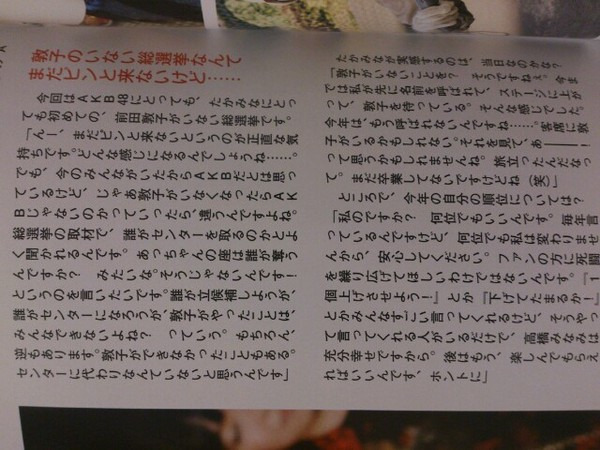 敦子のいない総選挙なんて
まだピンと来ないけど……
今回はＡＫＢ48にとっても、たかみなにとっ
ても初めての、前田敦子がいない総選挙です。
「んー、まだピンと来ないというのが正直な気
持ちです。どんな感じになるんでしょうね……。
でも、今のみんながいたからＡＫＢだとは思っ
ているけど、じゃあ敦子がいなくなったらＡＫ
Ｂじゃないのかっていったら、違うんですよね。
総選挙の取材で、誰がセンターを取るのかとよ
く聞かれるんです。あっちゃんの座は誰が奪う
んですか？　みたいな。そうじゃないんです！
というのを言いたいです。誰が立候補しようが、
誰がセンターになろうが、敦子がやったことは、
みんなできないよね？　っていう。もちろん、
逆もあります。敦子ができなかったこともある。
センターに代わりなんていないと思うんです」
たかみなが実感するのは、当日なのかな？
「敦子がいないことを？　そうですねぇ。今ま
では私が先に名前を呼ばれて、ステージに上が
って、敦子を待っている。そんな感じでした。
今年は、もう呼ばれないんですね……。客席に敦
子がいるかもしれない。それを見て、あーー！
って思うかもしれませんね。旅立ったんだなっ
て。まだ卒業してないですけどね（笑）」
ところで、今年の自身の順位については？
「私のですか？　何位でもいいんです。毎年言
っているんですけど、何位でも私は変わりませ
んから、安心してください。ファンの方に死闘
を繰り広げてほしいわけではないんです。『１
個上げさせよう！』とか『下げてたまるか！』
とかみんなすごい言ってくれるけど、そうやっ
て言ってくれる人がいるだけで、高橋みなみは
充分幸せですから。後はもう、楽しんでもらえ
ればいいんです、ホントに」